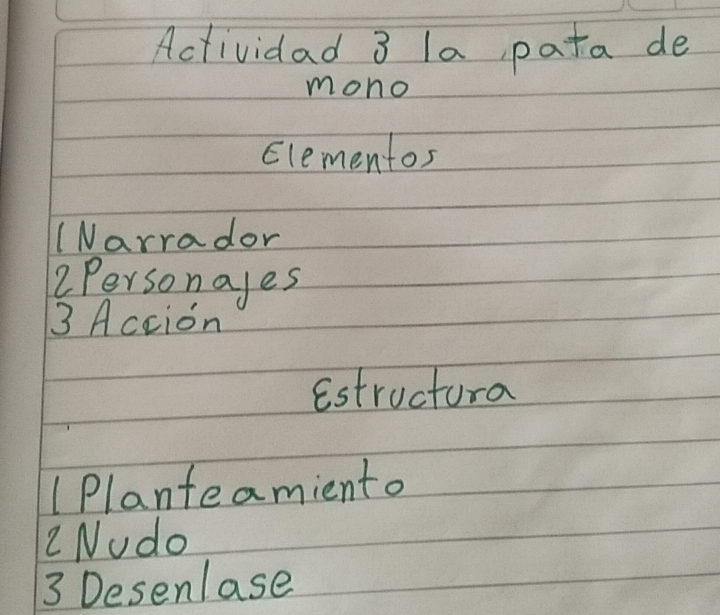 Actividad 3 la pata de
mono
Elementos
1 Narrador
2 Personajes
3 Acción
Estructura
1 Planteamiento
2 Nudo
3 Desenlase